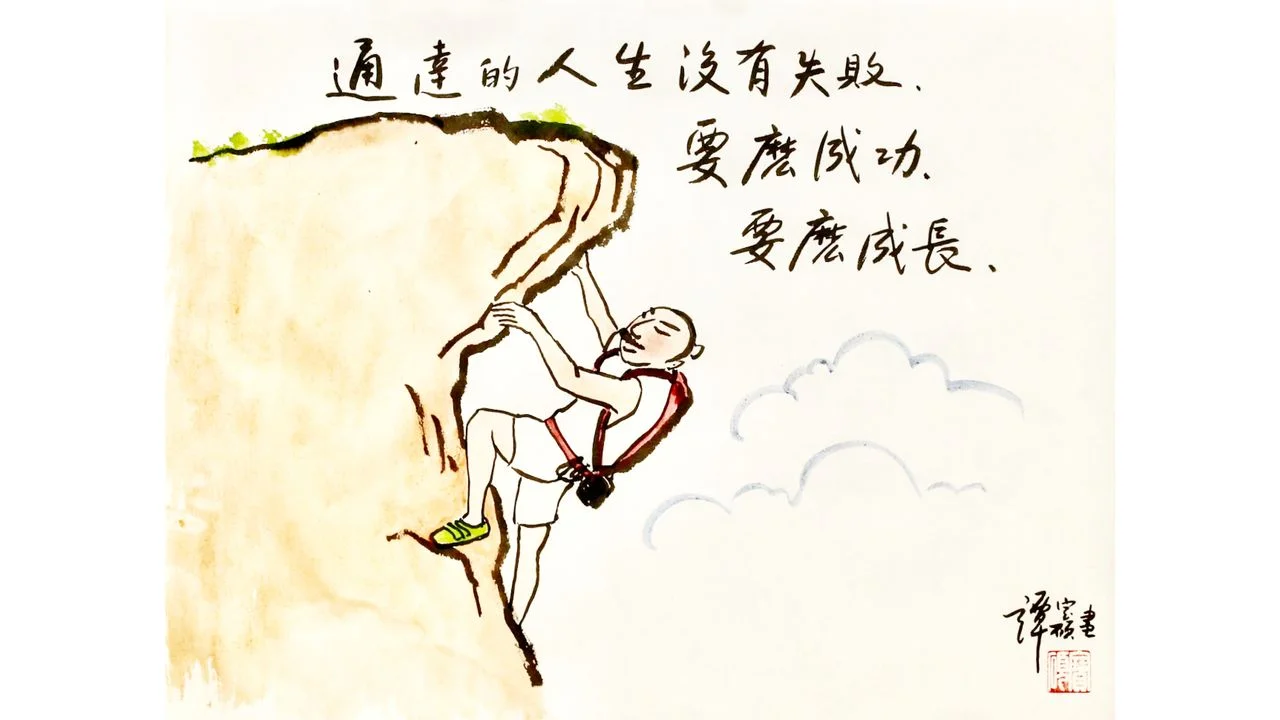 通達的人生沒有失敗、
要麼成功、
要麼成長、
譚寶碩畫